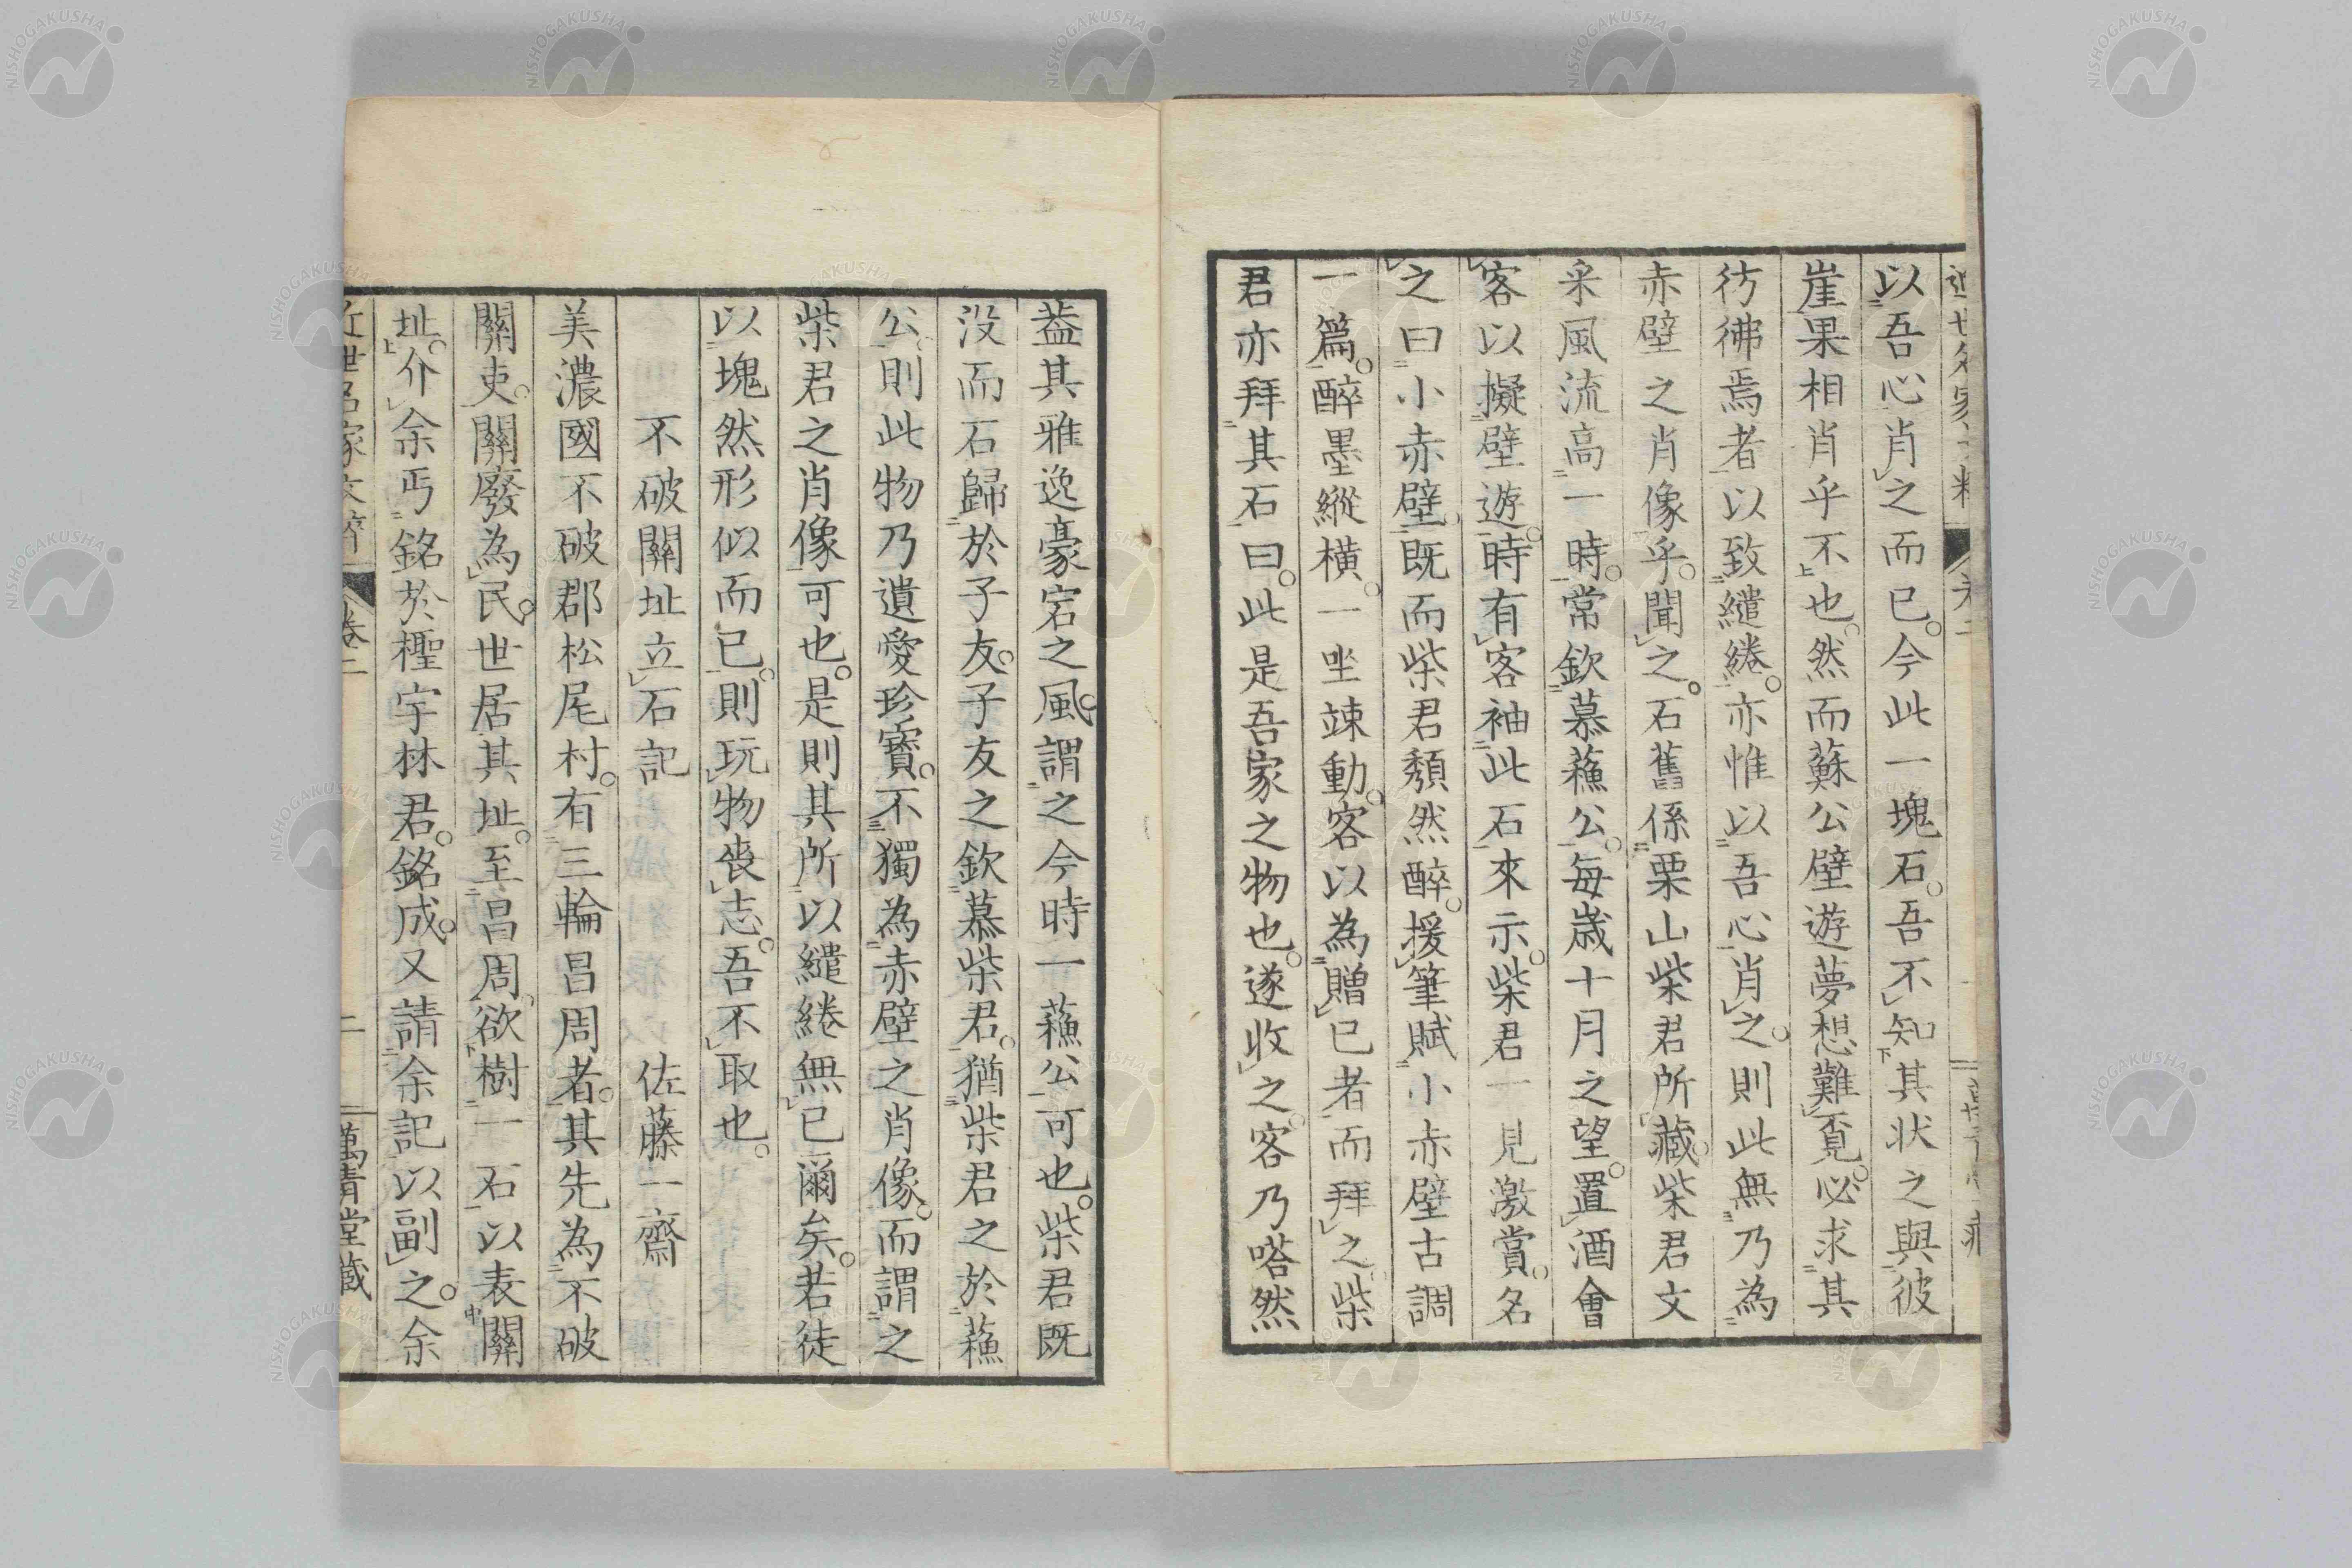 以吾心肖之而已。今此一塊石。吾不知其状之與彼
崖果相肖乎不也。然而蘇公壁遊夢想難覔。必求其
彷彿焉者以致繾綣。亦惟以吾心肖之。則此無乃為
赤壁之肖像乎。聞之。石舊係栗山柴君所藏。柴君文
采風流高一時。常欽慕蘓公。每歳十月之望。置酒會
客以擬壁遊。時有客袖此石來示。柴君一見激賞。名
之曰小赤壁。既而柴君頽然醉。援筆賦小赤壁古調
一篇。醉墨縱橫。一坐竦動。客以為贈已者而拜之。柴
君亦拜其石曰。此是吾家之物也。遂收之。客乃嗒然
葢其雅逸豪宕之風。謂之今時一蘓公可也。柴君既
没而石歸於子友。子友之欽慕柴君。猶柴君之於蘓
公。則此物乃遺愛珍寳。不獨為赤壁之肖像。而謂之
柴君之肖像可也。是則其所以繾綣無已爾矣。若徒
以塊然形似而已。則玩物喪志。吾不取也。
不破關址立石記 佐藤一齋
美濃國不破郡松尾村。有三輪昌周者。其先為不破
關吏。關廢為民。世居其址。至昌周。欲樹一石以表關
址。介余丐銘於檉宇林君。銘成。又請余記以副之。余
近世名家文粹 卷二 二 萬青堂藏
NISHOGAKUSHA